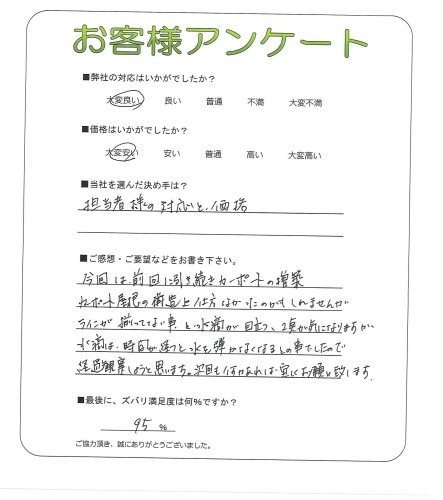 お客様アンケート
■弊社の対応はいかがでしたか?
大変良い 良い 普通 不満 大変不満
■価格はいかがでしたか?
大変安い 安い 普通 高い 大変高い
■当社を選んだ決め手は?
担当者様の対応と、価格
■ご感想・ご要望などをお書き下さい。
今回は前回に引き続きカーポートの増築
カーポート屋根の構造上仕方なかったのかもしれませんが
ラインが揃ってない事と水滴が目立つ、2点が気になりますが
水滴は、時間が経つと水を弾かなくなるとの事でしたので
経過観察しようと思います。次回も何かあれば宜しくお願い致します。
■最後に、ズバリ満足度は何%ですか?
95 %
ご協力頂き、誠にありがとうございました。